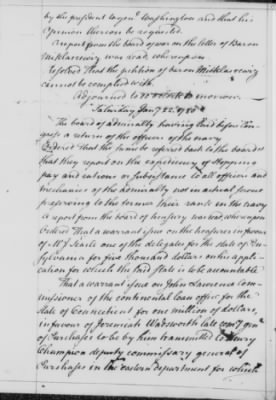 by the president to gen.l Washington and that his
opinion thereon be requested.
A report from the board of war on the letter of Baron
was read, whereupon
Resolved That the petition of baron
cannot be complied with.
Adjourned to 10 oClock to morrow.
Saturday Jan.y 22. 1780
The board of admiralty having laid before Con-
gress a return of the officers of the navy
Ordered That the same be referred back to the board &
that they report on the expediency of stopping
pay and rations or subsistance to all officers and
mechanics of the admiralty not in actual service
preserving to the former their rank in the navy
A report from the board of treasury was read, whereupon
Ordered That a warrant issue on the treasurer in favour
of Mr J. Searle one of the delegates for the state of Pen-
sylvania for five thousand dollars on his appli-
cation for which the said state is to be accountable
That a warrant issue on John Lawrence com-
missioner of the continental loan office for the
state of Connecticut for one million of dollars,
in favour of Jeremiah Wadsworth late com.y gen.l
of Purchases to be by him transmitted to Henry
Champion deputy commissary general of
Purchases in the eastern department for which